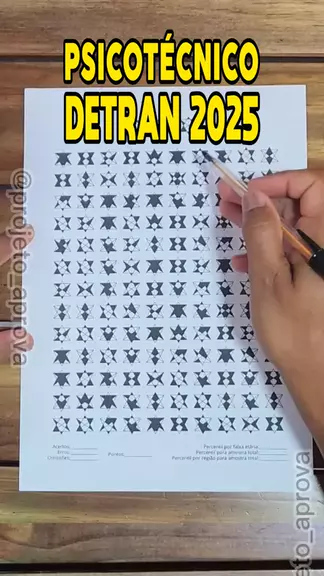 PSICOTÉCNICO
DETRAN 2025
@projeto_aprova
Acertos:
Erros:
Omissões:
Pontos:
Percentil por faixa etária:
Percentil para amostra total:
Percentil por região para amostra total:
eto_aprova